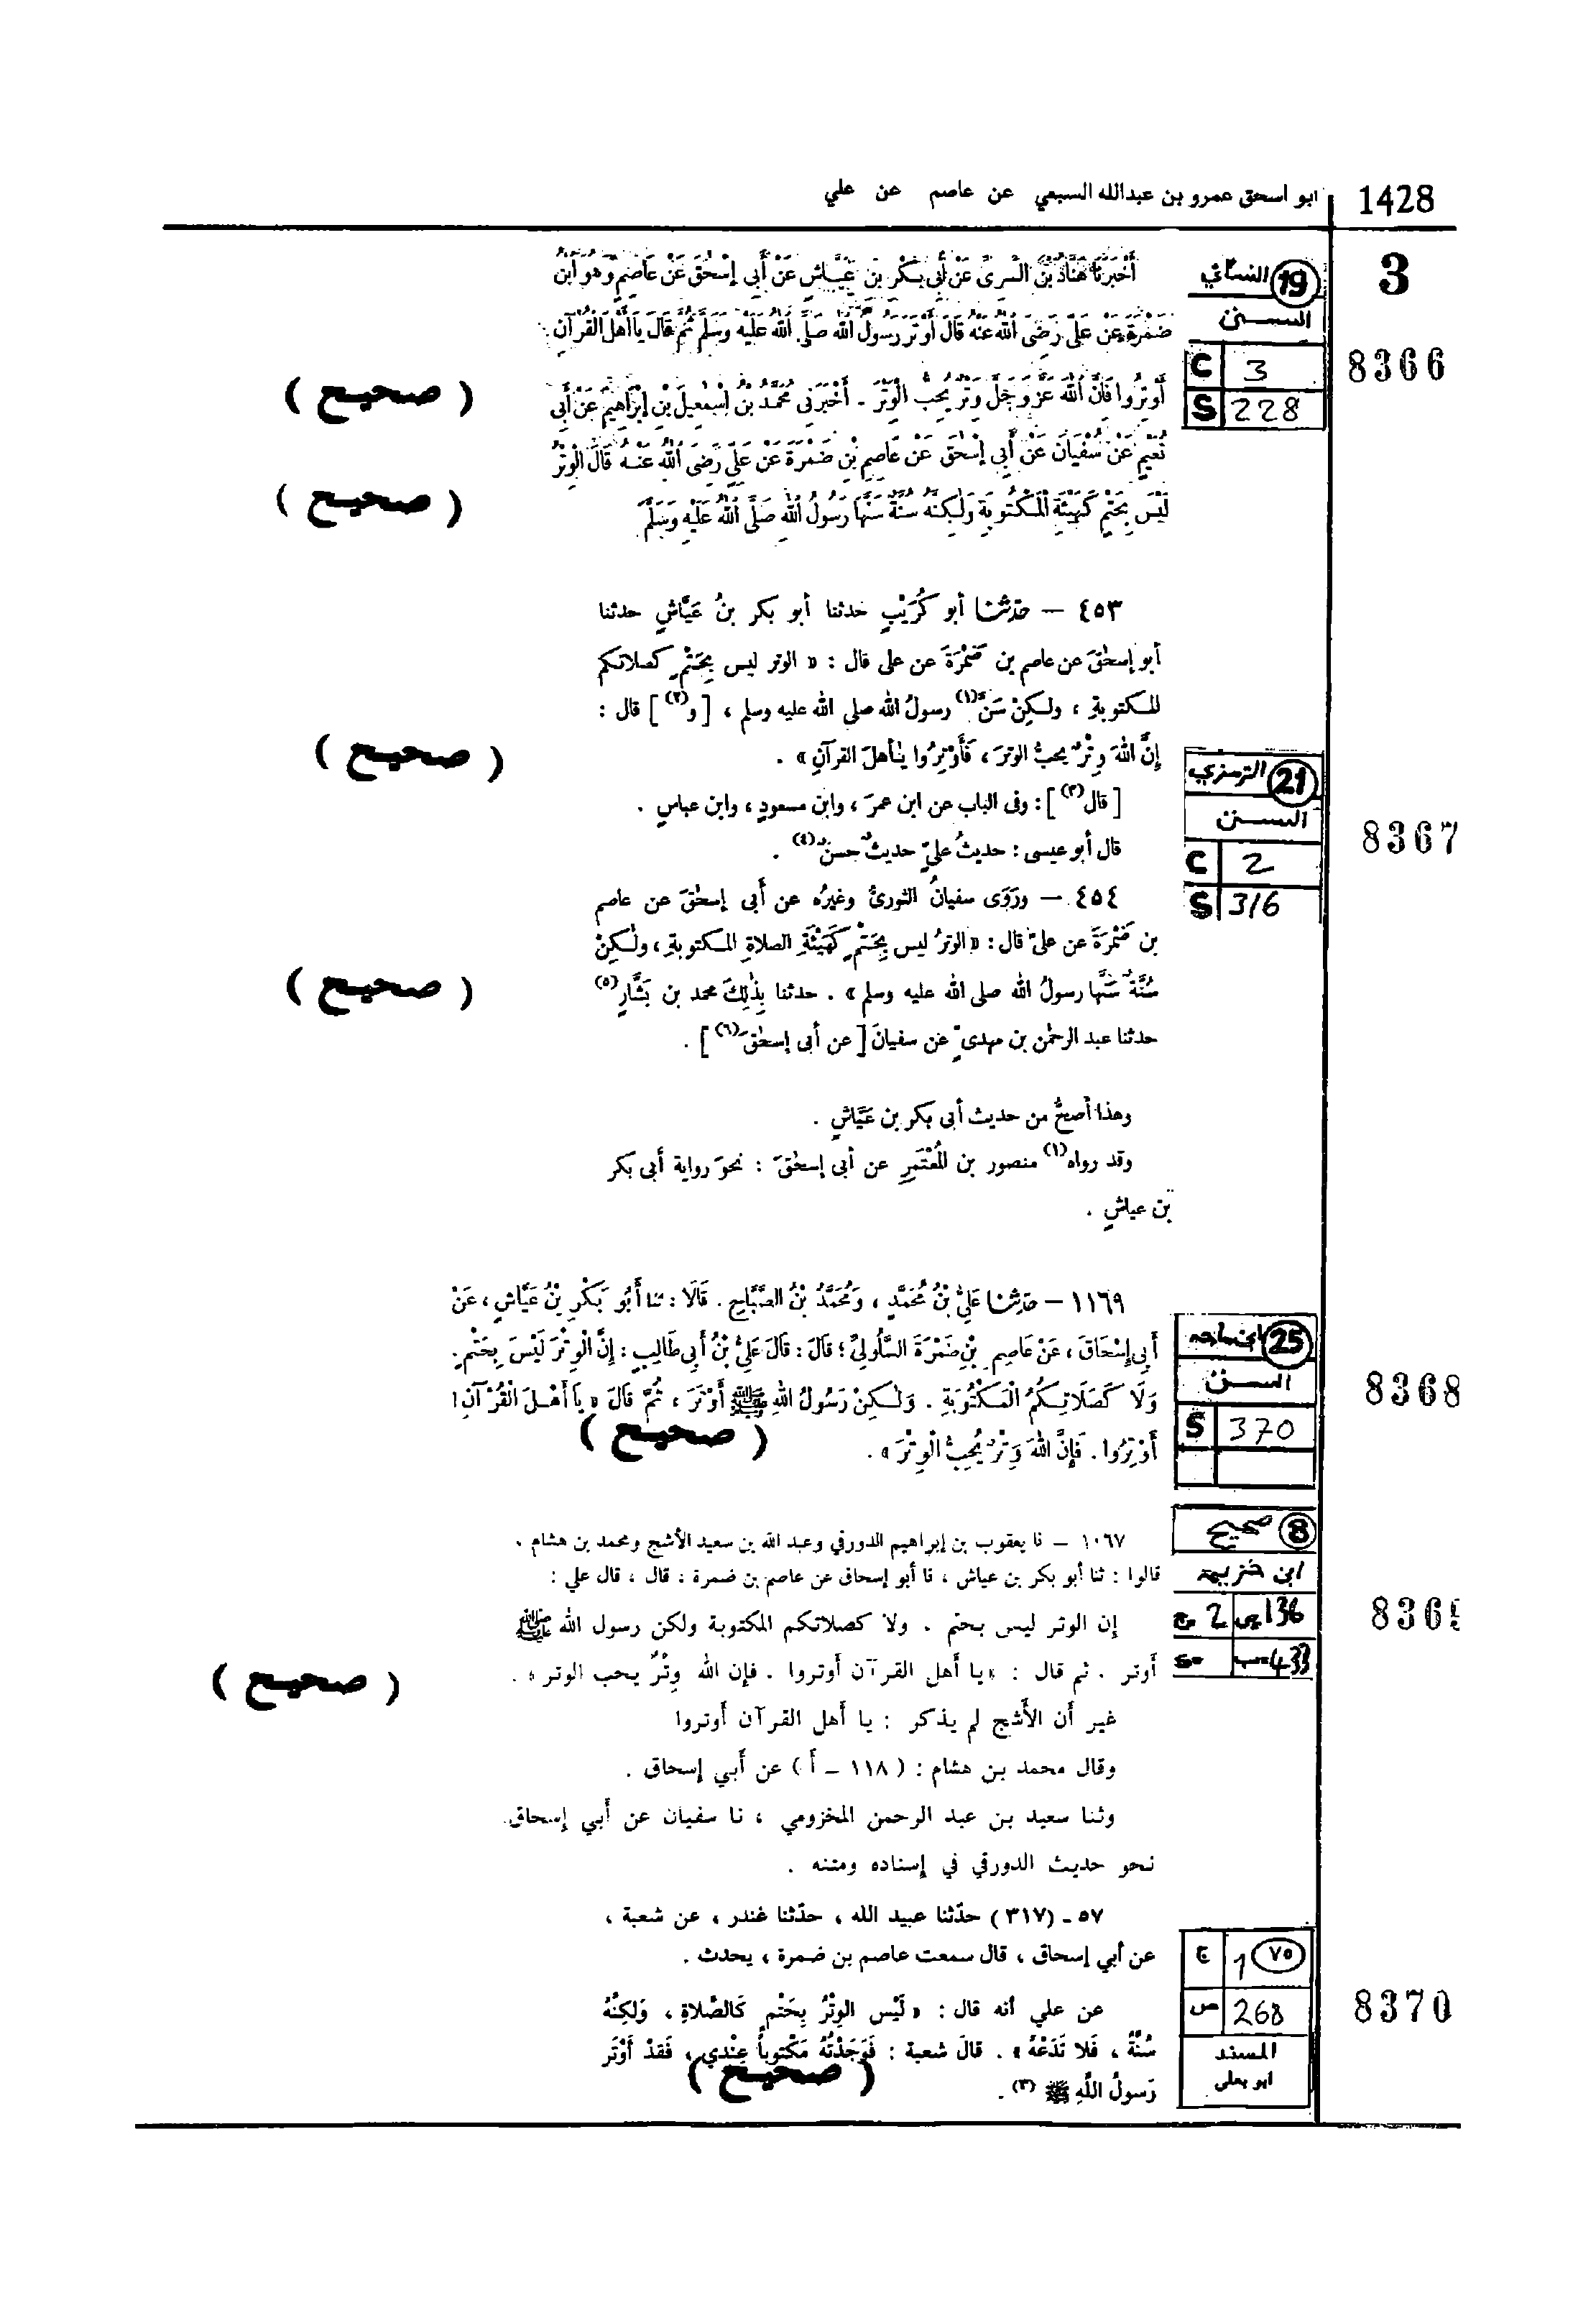 1428 ابو اسحق عمرو بن عبدالله السبعي عن عاصم عن علي
3
19 النسائي
السنن
C 3
S 228
8366
أَخْبَرَنَا هَنَّادُ بْنُ السَّرِىِّ عَنْ أَبِى بَكْرِ بْنِ عَيَّاشٍ عَنْ أَبِى إِسْحٰقَ عَنْ عَاصِمٍ وَهُوَ ابْنُ
ضَمْرَةَ عَنْ عَلِىٍّ رَضِىَ اللهُ عَنْهُ قَالَ أَوْتَرَ رَسُولُ اللهِ صَلَّى اللهُ عَلَيْهِ وَسَلَّمَ ثُمَّ قَالَ يَا أَهْلَ الْقُرْآنِ
أَوْتِرُوا فَإِنَّ اللهَ عَزَّ وَجَلَّ وَتْرٌ يُحِبُّ الْوَتْرَ . أَخْبَرَنِى مُحَمَّدُ بْنُ إِسْمٰعِيلَ بْنِ إِبْرَاهِيمَ عَنْ أَبِى
( صحيح )
نُعَيْمٍ عَنْ سُفْيَانَ عَنْ أَبِى إِسْحٰقَ عَنْ عَاصِمِ بْنِ ضَمْرَةَ عَنْ عَلِىٍّ رَضِىَ اللهُ عَنْهُ قَالَ الْوِتْرُ
لَيْسَ بِحَتْمٍ كَهَيْئَةِ الْمَكْتُوبَةِ وَلٰكِنَّهُ سُنَّةٌ سَنَّهَا رَسُولُ اللهِ صَلَّى اللهُ عَلَيْهِ وَسَلَّمَ
( صحيح )
٤٥٣ — حدثنا أبو كُرَيْبٍ حدثنا أبو بكر بنُ عَيَّاشٍ حدثنا
أبو إسحٰقَ عن عاصم بن ضَمْرَةَ عن على قال : « الوتر ليس بِحَتْمٍ كصلاتكم
المكتوبةِ ، ولكِنْ سَنَّ(١) رسولُ الله صلى الله عليه وسلم ، [ و(٢) ] قال :
إِنَّ اللهَ وِتْرٌ يحبُّ الوترَ ، فَأَوْتِرُوا يٰأهلَ القرآنِ » .
( صحيح )
[ قال(٣) ] : وفى الباب عن ابن عمرَ ، وابنِ مسعودٍ ، وابن عباسٍ .
قال أبو عيسى : حديثُ علىٍّ حديثٌ حسنٌ(٤) .
21 الترمزي
السنن
C 2
S 316
8367
٤٥٤ — ورَوَى سفيانُ الثورىُّ وغيرُه عن أبى إسحٰقَ عن عاصم
بن ضَمْرَةَ عن علىّ قال : « الوترُ ليس بِحَتْمٍ كَهَيْئَةِ الصلاةِ المكتوبةِ ، ولٰكِنْ
سُنَّةٌ سَنَّهَا رسولُ الله صلى الله عليه وسلم » . حدثنا بِذٰلِكَ محمد بن بَشَّارٍ(٥)
( صحيح )
حدثنا عبد الرحمٰن بن مهدىّ عن سفيانَ [ عن أبى إسحٰقَ(٦) ] .
وهذا أصحُّ من حديث أبى بكر بن عَيَّاشٍ .
وقد رواه(١) منصور بن الْمُعْتَمِرِ عن أبى إسحٰقَ : نحوَ رواية أبى بكر
بن عياشٍ .
25 ابن ماجه
السنن
S 370
8368
١١٦٩ — حدثنا عَلِىُّ بْنُ مُحَمَّدٍ ، وَمُحَمَّدُ بْنُ الصَّبَّاحِ . قَالَا : ثنا أَبُو بَكْرِ بْنُ عَيَّاشٍ ، عَنْ
أَبِى إِسْحَاقَ ، عَنْ عَاصِمِ بْنِ ضَمْرَةَ السَّلُولِىِّ ؛ قَالَ : قَالَ عَلِىُّ بْنُ أَبِى طَالِبٍ : إِنَّ الْوِتْرَ لَيْسَ بِحَتْمٍ .
وَلَا كَصَلَاتِكُمُ الْمَكْتُوبَةِ . وَلٰكِنْ رَسُولُ اللهِ ﷺ أَوْتَرَ ، ثُمَّ قَالَ « يَا أَهْلَ الْقُرْآنِ !
أَوْتِرُوا . فَإِنَّ اللهَ وِتْرٌ يُحِبُّ الْوِتْرَ » .
( صحيح )
8 صحيح
ابن خزيمة
ج 2 ص 136
433
١٠٦٧ — نا يعقوب بن إبراهيم الدورقي وعبد الله بن سعيد الأشج ومحمد بن هشام .
قالوا : ثنا أبو بكر بن عياش ، نا أبو إسحاق عن عاصم بن ضمرة ، قال ، قال علي :
إن الوتر ليس بحتم . ولا كصلاتكم المكتوبة ولكن رسول الله ﷺ
أوتر . ثم قال : « يا أهل القرآن أوتروا . فإن الله وِتْرٌ يحب الوتر » .
( صحيح )
غير أن الأشج لم يذكر : يا أهل القرآن أوتروا
وقال محمد بن هشام : ( ١١٨ — أ ) عن أبي إسحاق .
وثنا سعيد بن عبد الرحمن المخزومي ، نا سفيان عن أبي إسحاق
نحو حديث الدورقي في إسناده ومتنه .
٧٥ ج 1
ص 268
المسند
ابو يعلى
8370
٥٧ - (٣١٧) حدّثنا عبيد الله ، حدّثنا غندر ، عن شعبة ،
عن أبي إسحاق ، قال سمعت عاصم بن ضمرة ، يحدث .
عن علي أنه قال : « لَيْس الوِتْرُ بِحَتْمٍ كَالصَّلاةِ ، وَلكِنَّهُ
سُنَّةٌ ، فَلا تَدَعْهُ » . قالَ شعبة : فَوَجَدْتُهُ مَكْتوباً عِنْدي ، فَقدْ أَوْتَر
رَسولُ اللَّهِ ﷺ (٣) .
( صحيح )